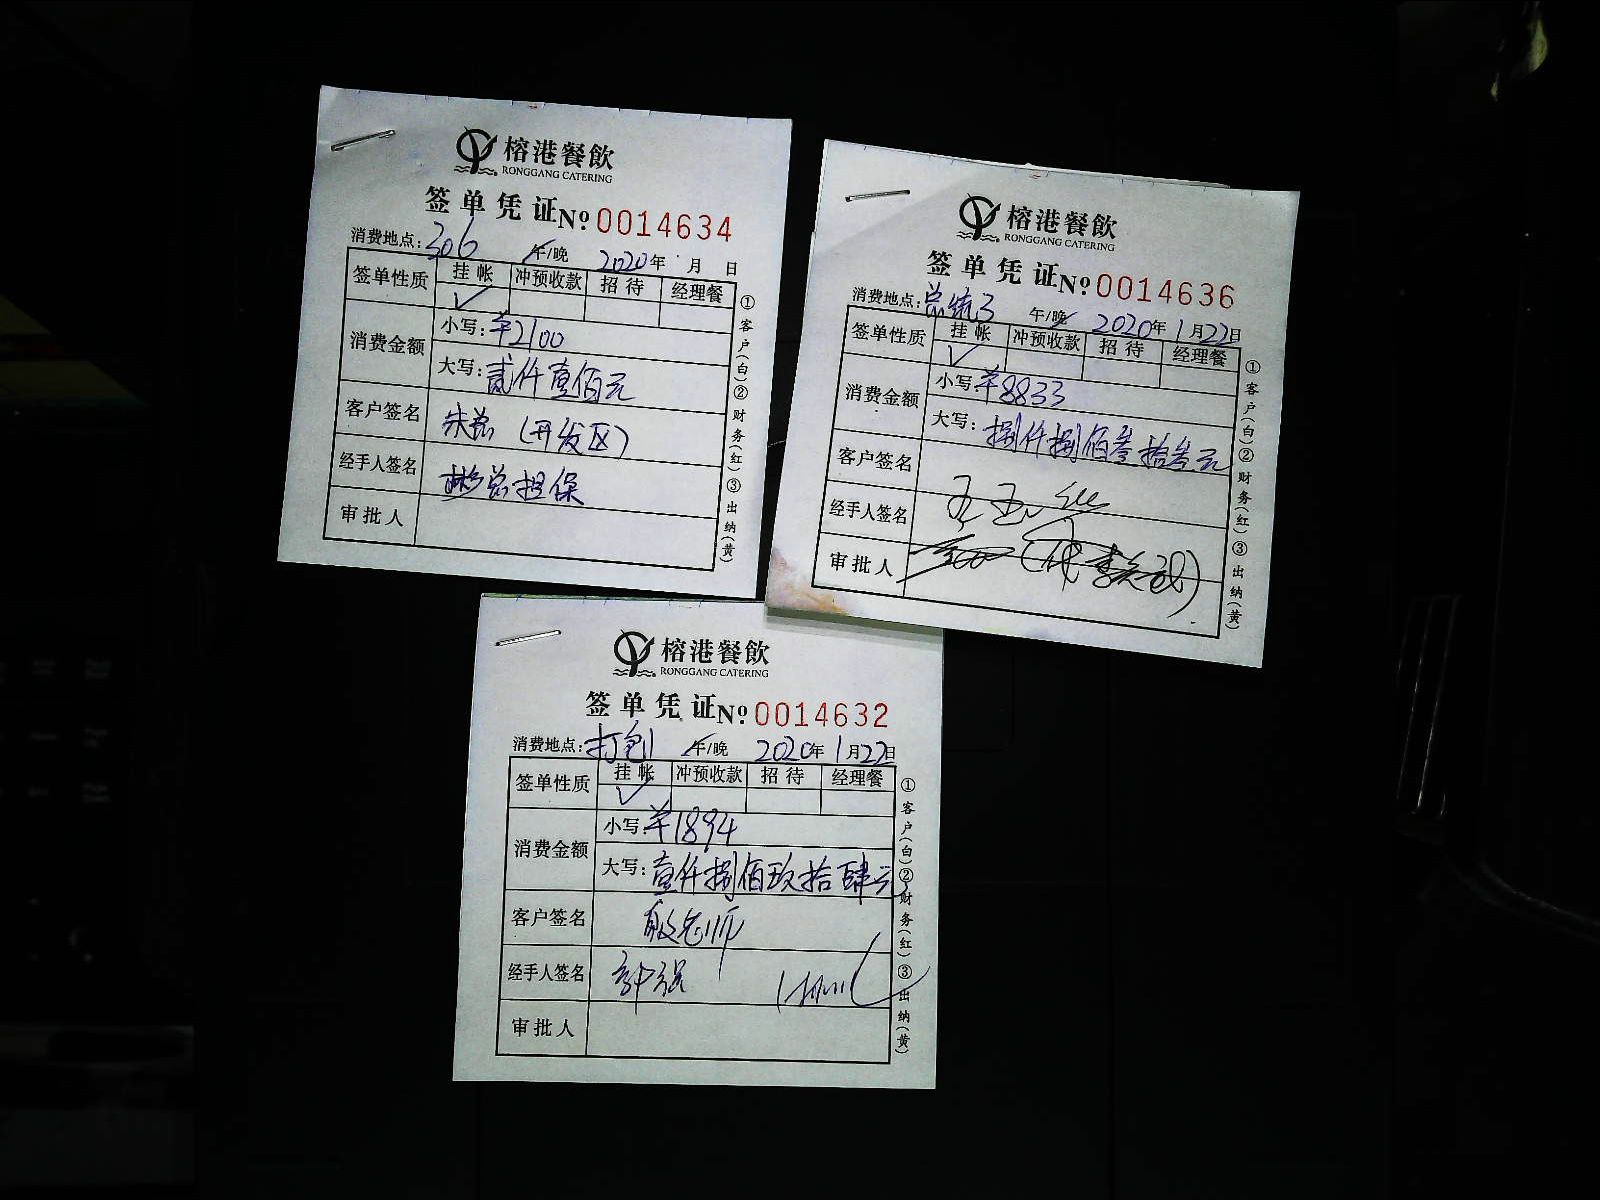 榕港餐飲
RONGGANG CATERING
签单凭证 Nº 0014634
消费地点: 306 午/晚 2020年 月 日
签单性质 挂帐 冲预收款 招待 经理餐
✓
消费金额 小写: ¥2100
大写: 贰仟壹佰元
客户签名 朱磊 (开发区)
经手人签名 彬总担保
审批人
①客户(白)②财务(红)③出纳(黄)
榕港餐飲
RONGGANG CATERING
签单凭证 Nº 0014636
消费地点: 总统3 午/晚 2020年1月22日
签单性质 挂帐 冲预收款 招待 经理餐
✓
消费金额 小写: ¥8833
大写: 捌仟捌佰叁拾叁元
客户签名
经手人签名
审批人
①客户(白)②财务(红)③出纳(黄)
榕港餐飲
RONGGANG CATERING
签单凭证 Nº 0014632
消费地点: 打包 午/晚 2020年1月22日
签单性质 挂帐 冲预收款 招待 经理餐
✓
消费金额 小写: ¥1894
大写: 壹仟捌佰玖拾肆元
客户签名 殷老师
经手人签名
审批人
①客户(白)②财务(红)③出纳(黄)